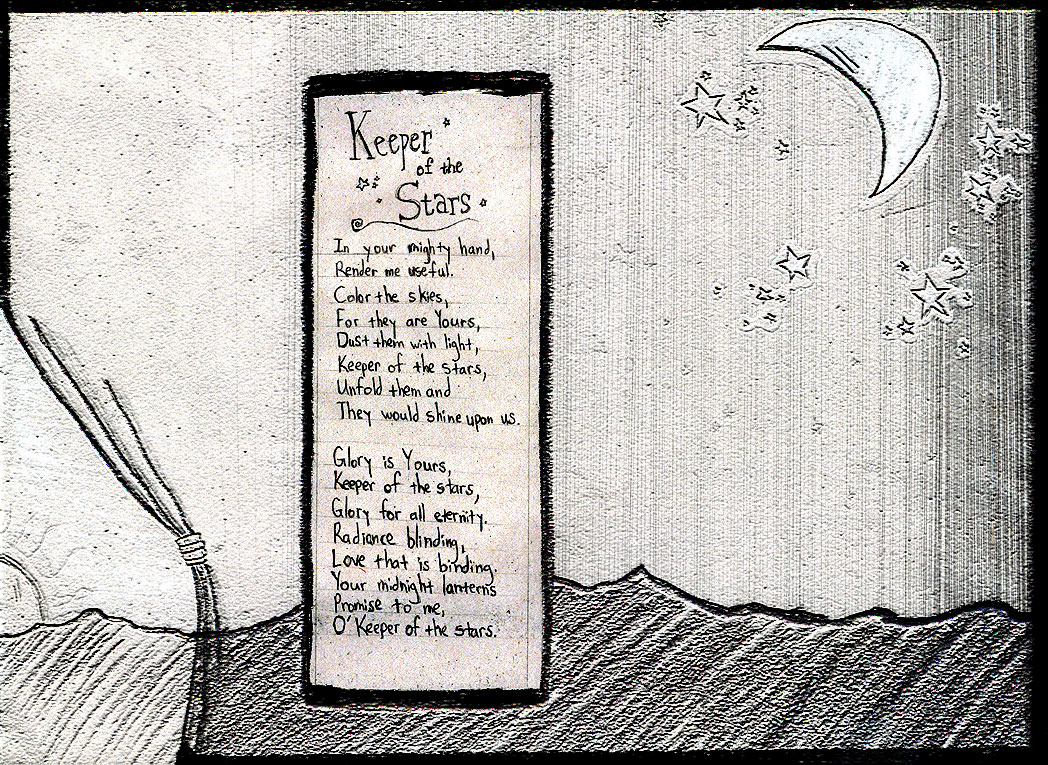 Keeper
of the
Stars
In your mighty hand,
Render me useful.
Color the skies,
For they are Yours,
Dust them with light,
Keeper of the stars,
Unfold them and
They would shine upon us.
Glory is Yours,
Keeper of the stars,
Glory for all eternity.
Radiance blinding,
Love that is binding.
Your midnight lanterns
Promise to me,
O' Keeper of the stars.